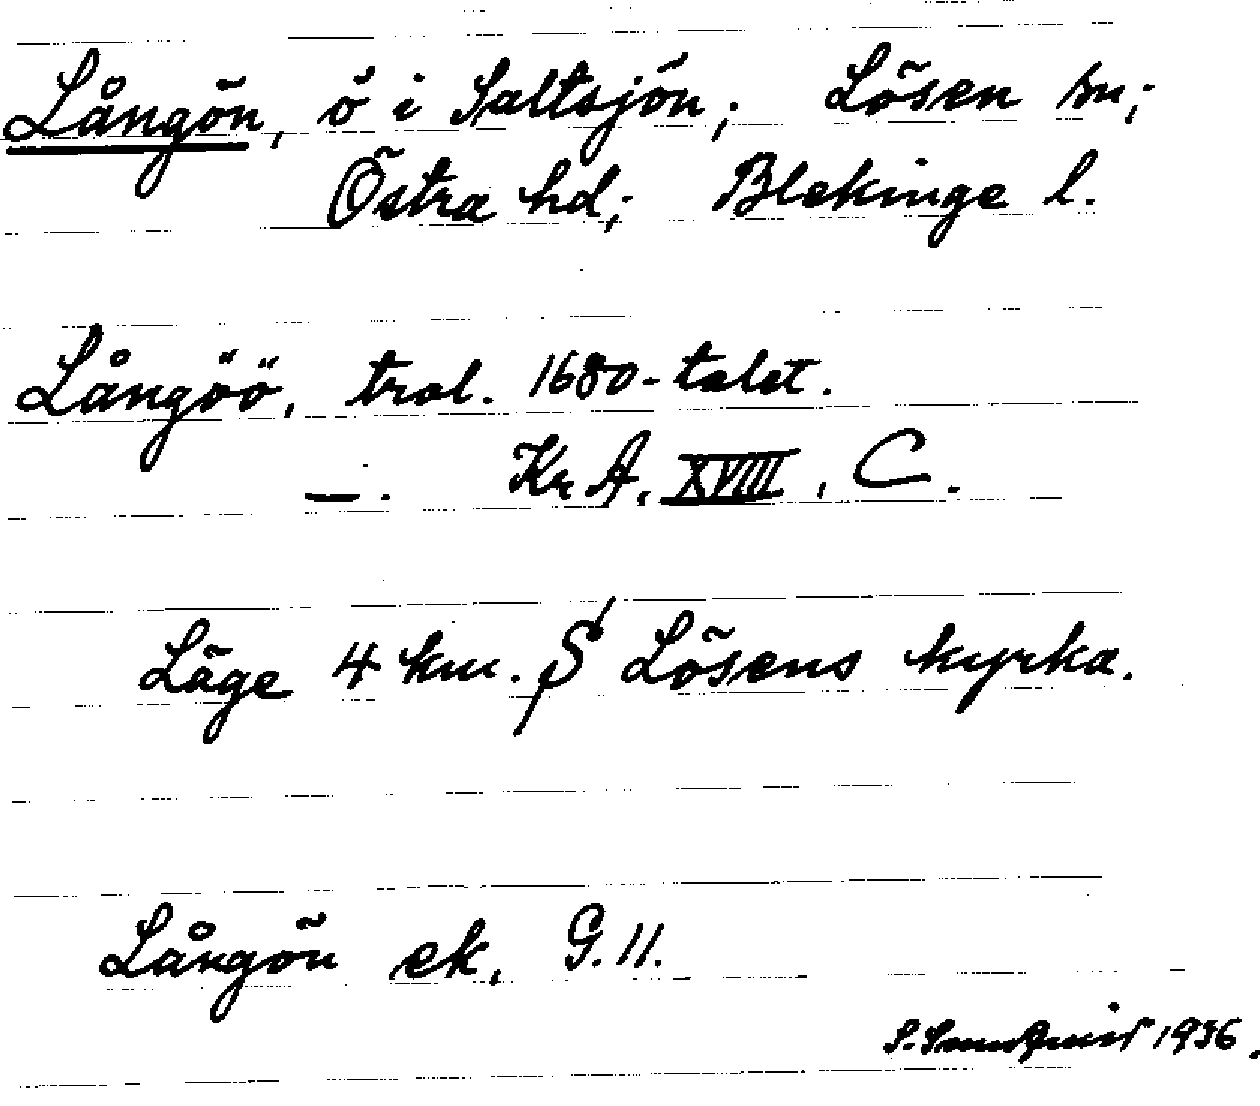 Långön, ö i Saltsjön; Lösen sn;
Östra hd; Blekinge l.
Långöö, trol. 1680-talet.
—. Kr. A. XVIII, C.
Läge 4 km. S Lösens kyrka.
Långön ek. G. 11.
1936.